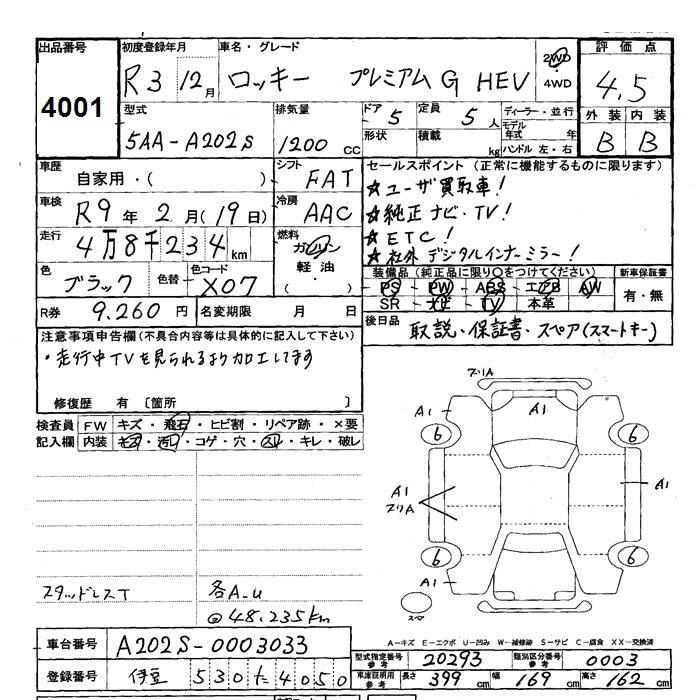 出品番号 初度登録年月 車名・グレード 2WD 4WD 評価点
4001 R3 12月 ロッキー プレミアムG HEV 4.5
型式 排気量 ドア 5 定員 5人 ディーラー・並行 外装 内装
5AA-A202S 1200cc 形状 積載 kg モデル年式 年 ハンドル 左・右 B B
車歴 自家用・( ) シフト FAT
車検 R9年 2月(19日) 冷房 AAC
走行 4万8千234km 燃料 ガソリン 軽油・( )
色 ブラック 色替 色コード X07
R券 9,260円 名変期限 月 日
セールスポイント (正常に機能するものに限ります)
☆ユーザ買取車!
☆純正ナビ・TV!
☆ETC!
☆社外デジタルインナーミラー!
装備品(純正品に限り○をつけてください) 新車保証書
PS・PW・ABS・エアB AW 有・無
SR・ナビ・TV・本革
後日品 取説・保証書・スペア(スマートキー)
注意事項申告欄(不具合内容等は具体的に記入して下さい)
・走行中TVを見られるよう加工してます
修復歴 有 〔箇所 〕
検査員 FW キズ・飛石・ヒビ割・リペア跡・×要
記入欄 内装 キズ・汚レ・コゲ・穴・スレ・キレ・破レ
スタッドレスT 各A.U
@48.235km
フリA
A1 A1
6 6
A1 A1
フリA
6 6
A1
スペア
A-キズ E-エクボ U-凹み W-補修跡 S-サビ C-腐食 XX-交換済
車台番号 A202S-0003033
登録番号 伊豆 530 た 4050
型式指定番号 参考 20293 類別区分番号 参考 0003
車庫証明用 参考 長さ 399cm 幅 169cm 高さ 162cm